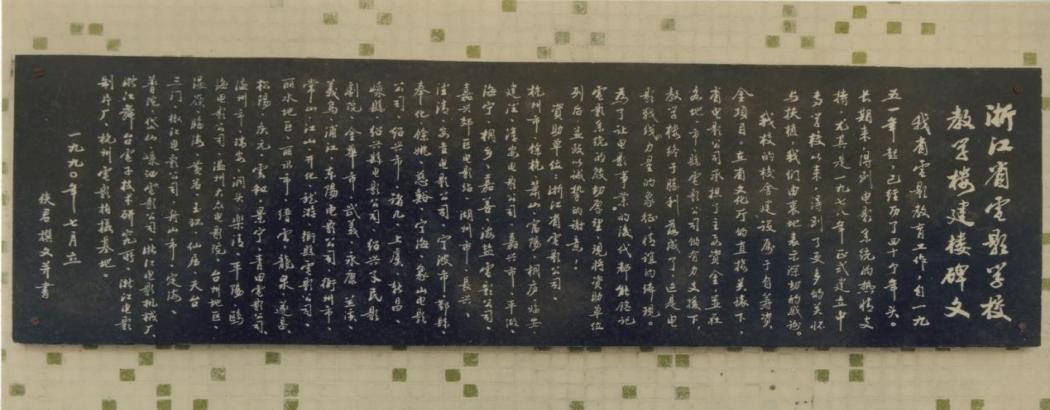 浙江省电影学校
教学楼建楼碑文
我省电影教育工作，自一九
五一年起，已经历了四十个年头。
长期来，得到电影系统的热情支
持，尤其是一九七八年正式建立中
专学校以来，得到了更多的关怀
与扶植，我们由衷地表示深切的感谢。
我校的校舍建设属于自筹资
金项目，在省文化厅的直接关怀下，
省电影公司承担了主要资金并在
各地市县电影公司的有力支援下，
教学楼终于胜利落成了。这是电
影战线力量的象征，情谊的体现。
为了让电影事业的后代都能铭记
电影系统的殷切希望，现将资助单位
列后并致以诚挚的谢意！
资助单位：浙江省电影公司、
杭州市、余杭、萧山、富阳、桐庐、临安、
建德、淳安电影公司、嘉兴市、平湖、
海宁、桐乡、嘉善、海盐电影公司、
嘉兴郊区电影站、湖州市、长兴、
德清、安吉电影公司、宁波市、鄞县、
奉化、余姚、慈溪、宁海、象山电影
公司、绍兴市、诸几、上虞、新昌、
嵊县、绍兴县电影公司、绍兴人民影
剧院、金华市、武义、永康、兰溪、
义乌、浦江、东阳电影公司、衢州市、
常山、江山、开化、龙游、衢县电影公司、
丽水地区、丽水市、缙云、龙泉、遂昌、
松阳、庆元、云和、景宁、青田电影公司、
温州市、瑞安、洞头、乐清、平阳、瓯
海电影公司、温州大众电影院、台州地区、
温岭、临海、黄岩、玉环、仙居、天台、
三门、椒江电影公司、舟山市、定海、
普陀、岱山、嵊泗电影公司、浙江电影机械厂、
浙江舞台电子技术研究所、浙江电影
制片厂、杭州电影拍摄基地。
一九九〇年七月立